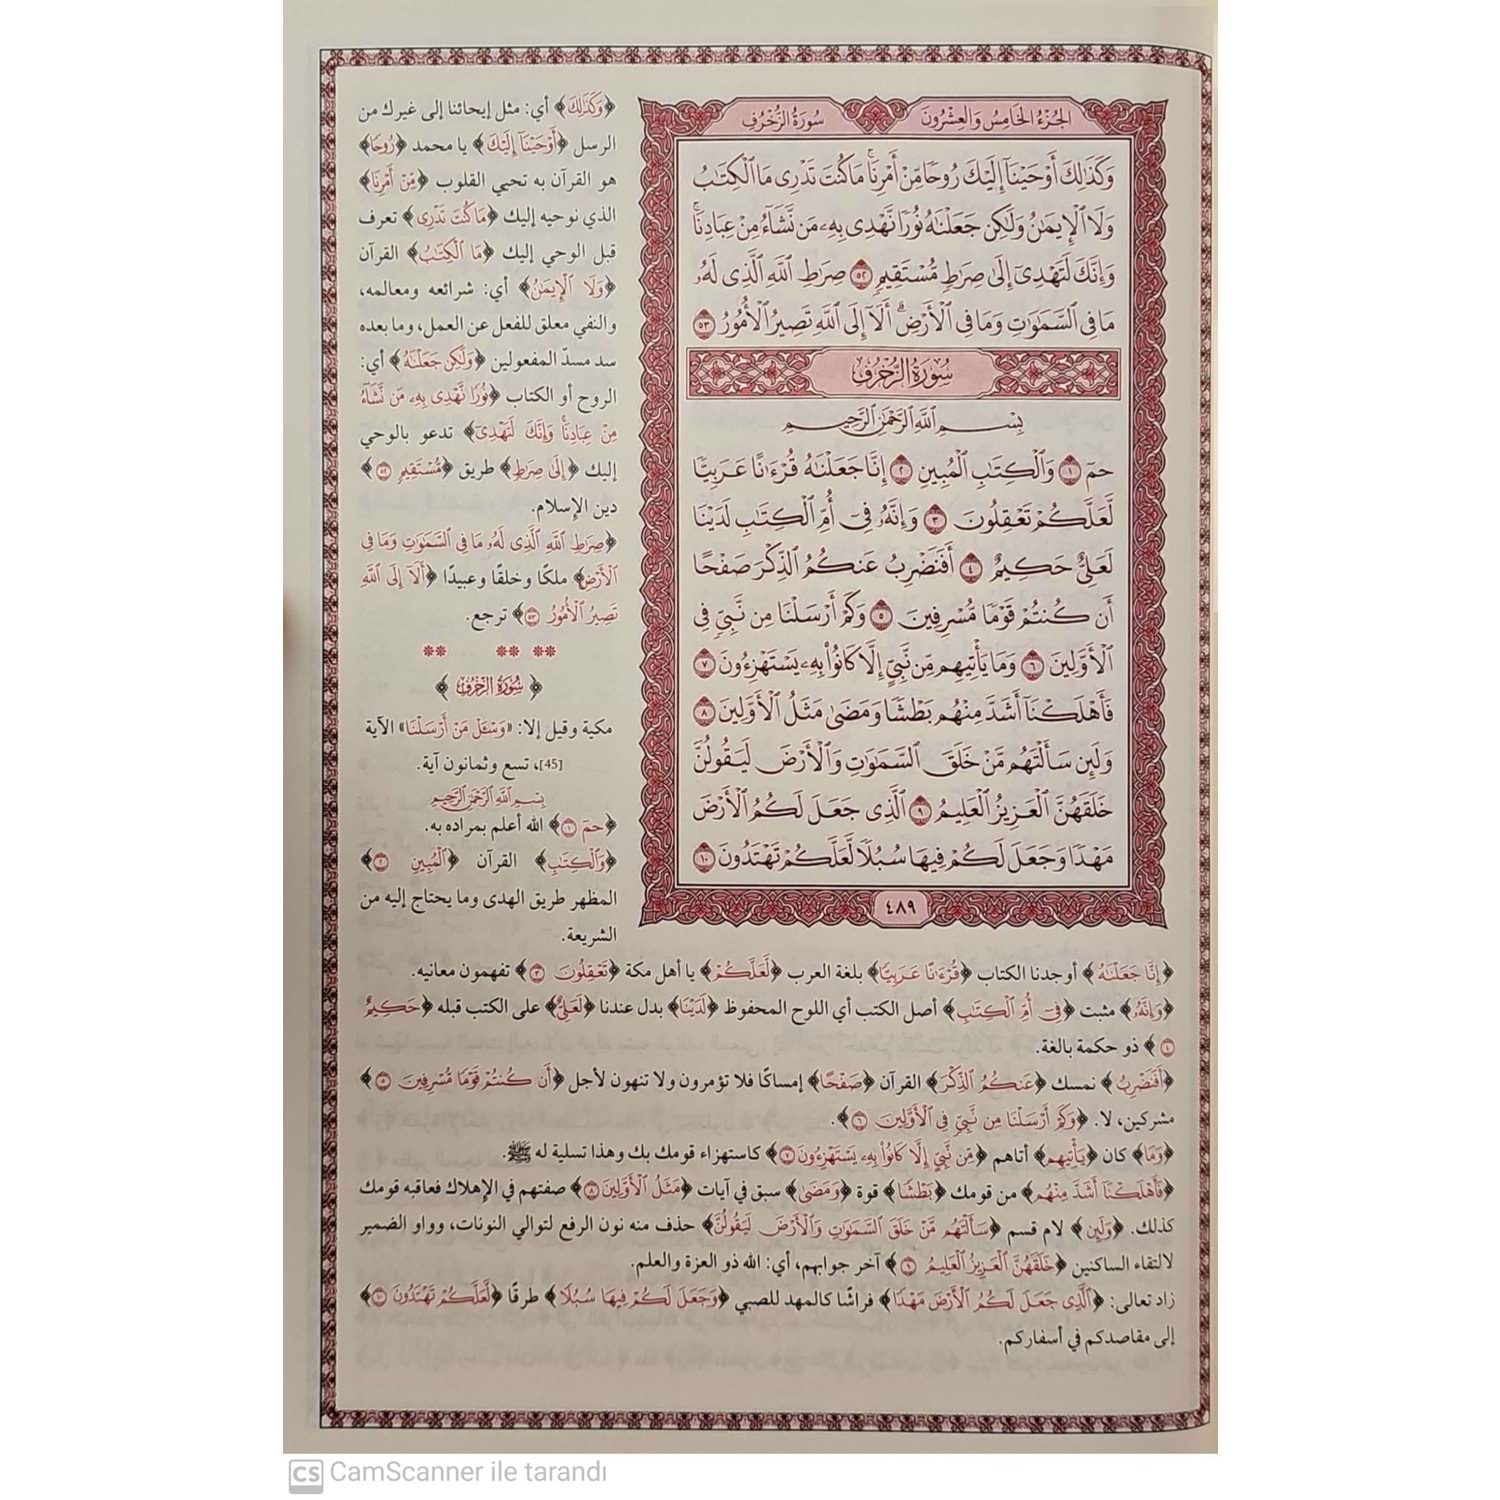 الجُزْءُ الخَامِسُ وَالعِشْرُونَ
سُورَةُ الزُّخْرُفِ
وَكَذَٰلِكَ أَوْحَيْنَآ إِلَيْكَ رُوحًا مِّنْ أَمْرِنَا ۚ مَا كُنتَ تَدْرِى مَا ٱلْكِتَٰبُ
وَلَا ٱلْإِيمَٰنُ وَلَٰكِن جَعَلْنَٰهُ نُورًا نَّهْدِى بِهِۦ مَن نَّشَآءُ مِنْ عِبَادِنَا ۚ
وَإِنَّكَ لَتَهْدِىٓ إِلَىٰ صِرَٰطٍ مُّسْتَقِيمٍ ٥٢ صِرَٰطِ ٱللَّهِ ٱلَّذِى لَهُۥ
مَا فِى ٱلسَّمَٰوَٰتِ وَمَا فِى ٱلْأَرْضِ ۗ أَلَآ إِلَى ٱللَّهِ تَصِيرُ ٱلْأُمُورُ ٥٣
سُورَةُ الزُّخْرُفِ
بِسْمِ ٱللَّهِ ٱلرَّحْمَٰنِ ٱلرَّحِيمِ
حمٓ ١ وَٱلْكِتَٰبِ ٱلْمُبِينِ ٢ إِنَّا جَعَلْنَٰهُ قُرْءَٰنًا عَرَبِيًّا
لَّعَلَّكُمْ تَعْقِلُونَ ٣ وَإِنَّهُۥ فِىٓ أُمِّ ٱلْكِتَٰبِ لَدَيْنَا
لَعَلِىٌّ حَكِيمٌ ٤ أَفَنَضْرِبُ عَنكُمُ ٱلذِّكْرَ صَفْحًا
أَن كُنتُمْ قَوْمًا مُّسْرِفِينَ ٥ وَكَمْ أَرْسَلْنَا مِن نَّبِىٍّ فِى
ٱلْأَوَّلِينَ ٦ وَمَا يَأْتِيهِم مِّن نَّبِىٍّ إِلَّا كَانُوا۟ بِهِۦ يَسْتَهْزِءُونَ ٧
فَأَهْلَكْنَآ أَشَدَّ مِنْهُم بَطْشًا وَمَضَىٰ مَثَلُ ٱلْأَوَّلِينَ ٨
وَلَئِن سَأَلْتَهُم مَّنْ خَلَقَ ٱلسَّمَٰوَٰتِ وَٱلْأَرْضَ لَيَقُولُنَّ
خَلَقَهُنَّ ٱلْعَزِيزُ ٱلْعَلِيمُ ٩ ٱلَّذِى جَعَلَ لَكُمُ ٱلْأَرْضَ
مَهْدًا وَجَعَلَ لَكُمْ فِيهَا سُبُلًا لَّعَلَّكُمْ تَهْتَدُونَ ١٠
٤٨٩
﴿وَكَذَٰلِكَ﴾ أي: مثل إيحائنا إلى غيرك من
الرسل ﴿أَوْحَيْنَآ إِلَيْكَ﴾ يا محمد ﴿رُوحًا﴾
هو القرآن به تحيي القلوب ﴿مِّنْ أَمْرِنَا﴾
الذي نوحيه إليك ﴿مَا كُنتَ تَدْرِى﴾ تعرف
قبل الوحي إليك ﴿مَا ٱلْكِتَٰبُ﴾ القرآن
﴿وَلَا ٱلْإِيمَٰنُ﴾ أي: شرائعه ومعالمه،
والنفي معلق للفعل عن العمل، وما بعده
سد مسدّ المفعولين ﴿وَلَٰكِن جَعَلْنَٰهُ﴾ أي:
الروح أو الكتاب ﴿نُورًا نَّهْدِى بِهِۦ مَن نَّشَآءُ
مِنْ عِبَادِنَا ۚ وَإِنَّكَ لَتَهْدِىٓ﴾ تدعو بالوحي
إليك ﴿إِلَىٰ صِرَٰطٍ﴾ طريق ﴿مُّسْتَقِيمٍ ٥٢﴾
دين الإسلام.
﴿صِرَٰطِ ٱللَّهِ ٱلَّذِى لَهُۥ مَا فِى ٱلسَّمَٰوَٰتِ وَمَا فِى
ٱلْأَرْضِ﴾ ملكًا وخلقًا وعبيدًا ﴿أَلَآ إِلَى ٱللَّهِ
تَصِيرُ ٱلْأُمُورُ ٥٣﴾ ترجع.
﴿سُورَةُ الزُّخْرُفِ﴾
مكية وقيل إلا: «وَسْـَٔلْ مَنْ أَرْسَلْنَا» الآية
[45]، تسع وثمانون آية.
بِسْمِ ٱللَّهِ ٱلرَّحْمَٰنِ ٱلرَّحِيمِ
﴿حمٓ ١﴾ الله أعلم بمراده به.
﴿وَٱلْكِتَٰبِ﴾ القرآن ﴿ٱلْمُبِينِ ٢﴾
المظهر طريق الهدى وما يحتاج إليه من
الشريعة.
﴿إِنَّا جَعَلْنَٰهُ﴾ أوجدنا الكتاب ﴿قُرْءَٰنًا عَرَبِيًّا﴾ بلغة العرب ﴿لَّعَلَّكُمْ﴾ يا أهل مكة ﴿تَعْقِلُونَ ٣﴾ تفهمون معانيه.
﴿وَإِنَّهُۥ﴾ مثبت ﴿فِىٓ أُمِّ ٱلْكِتَٰبِ﴾ أصل الكتب أي اللوح المحفوظ ﴿لَدَيْنَا﴾ بدل عندنا ﴿لَعَلِىٌّ﴾ على الكتب قبله ﴿حَكِيمٌ
٤﴾ ذو حكمة بالغة.
﴿أَفَنَضْرِبُ﴾ نمسك ﴿عَنكُمُ ٱلذِّكْرَ﴾ القرآن ﴿صَفْحًا﴾ إمساكًا فلا تؤمرون ولا تنهون لأجل ﴿أَن كُنتُمْ قَوْمًا مُّسْرِفِينَ ٥﴾
مشركين، لا. ﴿وَكَمْ أَرْسَلْنَا مِن نَّبِىٍّ فِى ٱلْأَوَّلِينَ ٦﴾.
﴿وَمَا﴾ كان ﴿يَأْتِيهِم﴾ أتاهم ﴿مِّن نَّبِىٍّ إِلَّا كَانُوا۟ بِهِۦ يَسْتَهْزِءُونَ ٧﴾ كاستهزاء قومك بك وهذا تسلية له ﷺ.
﴿فَأَهْلَكْنَآ أَشَدَّ مِنْهُم﴾ من قومك ﴿بَطْشًا﴾ قوة ﴿وَمَضَىٰ﴾ سبق في آيات ﴿مَثَلُ ٱلْأَوَّلِينَ ٨﴾ صفتهم في الإهلاك فعاقبه قومك
كذلك. ﴿وَلَئِن﴾ لام قسم ﴿سَأَلْتَهُم مَّنْ خَلَقَ ٱلسَّمَٰوَٰتِ وَٱلْأَرْضَ لَيَقُولُنَّ﴾ حذف منه نون الرفع لتوالي النونات، وواو الضمير
لالتقاء الساكنين ﴿خَلَقَهُنَّ ٱلْعَزِيزُ ٱلْعَلِيمُ ٩﴾ آخر جوابهم، أي: الله ذو العزة والعلم.
زاد تعالى: ﴿ٱلَّذِى جَعَلَ لَكُمُ ٱلْأَرْضَ مَهْدًا﴾ فراشًا كالمهد للصبي ﴿وَجَعَلَ لَكُمْ فِيهَا سُبُلًا﴾ طرقًا ﴿لَّعَلَّكُمْ تَهْتَدُونَ ١٠﴾
إلى مقاصدكم في أسفاركم.
CS CamScanner ile tarandı